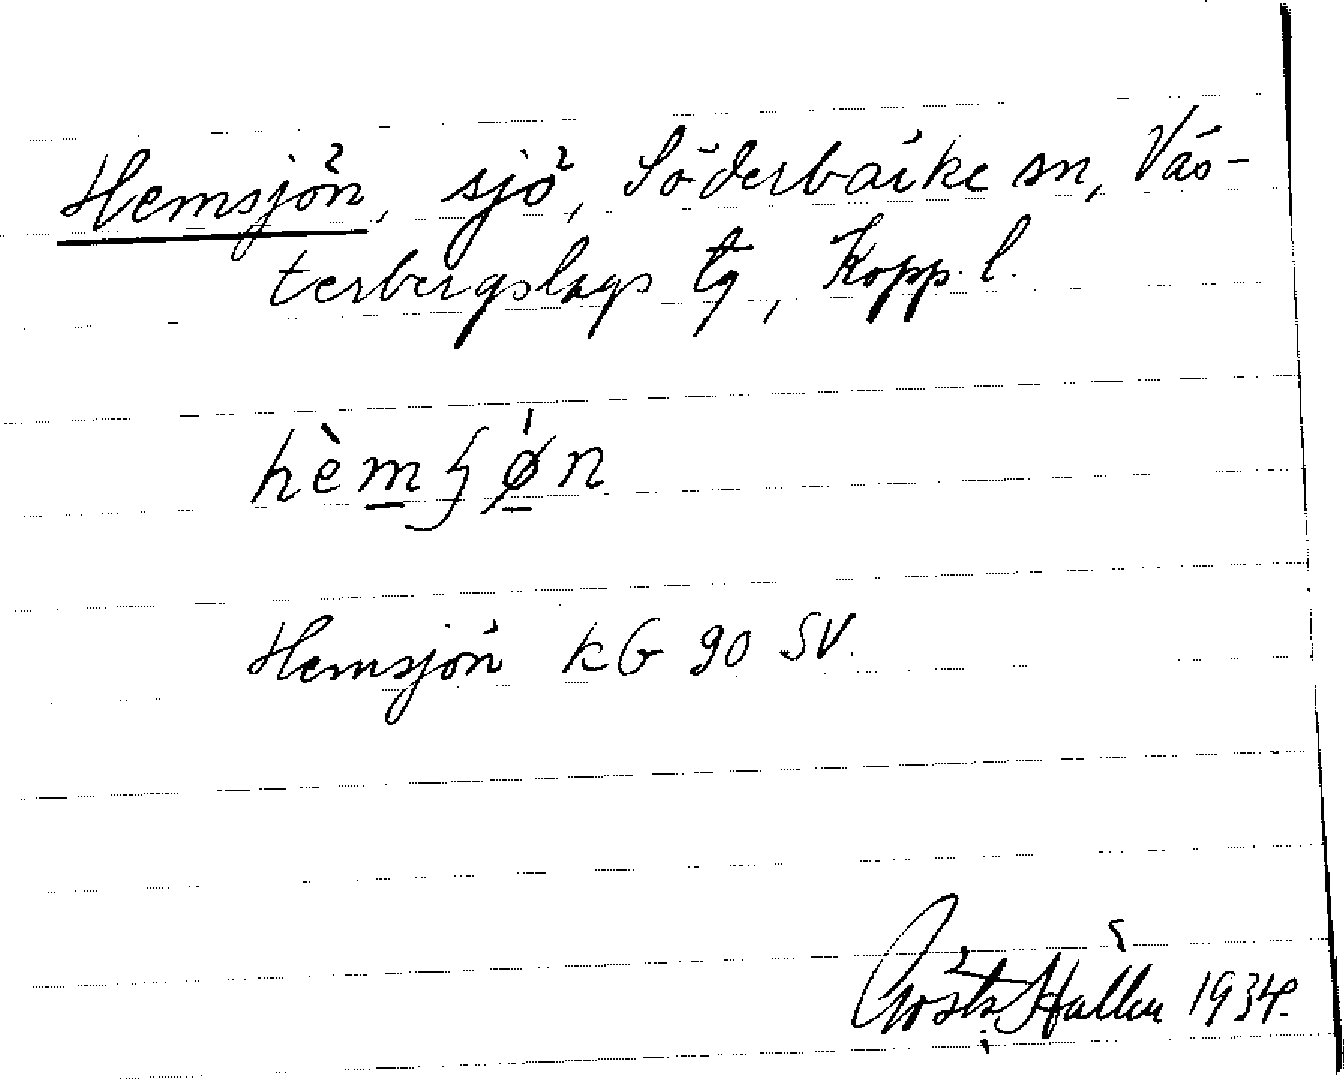 Hemsjön, sjö, Söderbärke sn, Väs-
terbergslags tg, Kopp. l.
hèmʃǿn
Hemsjön KG 90 SV.
Gösta Hallén 1934.